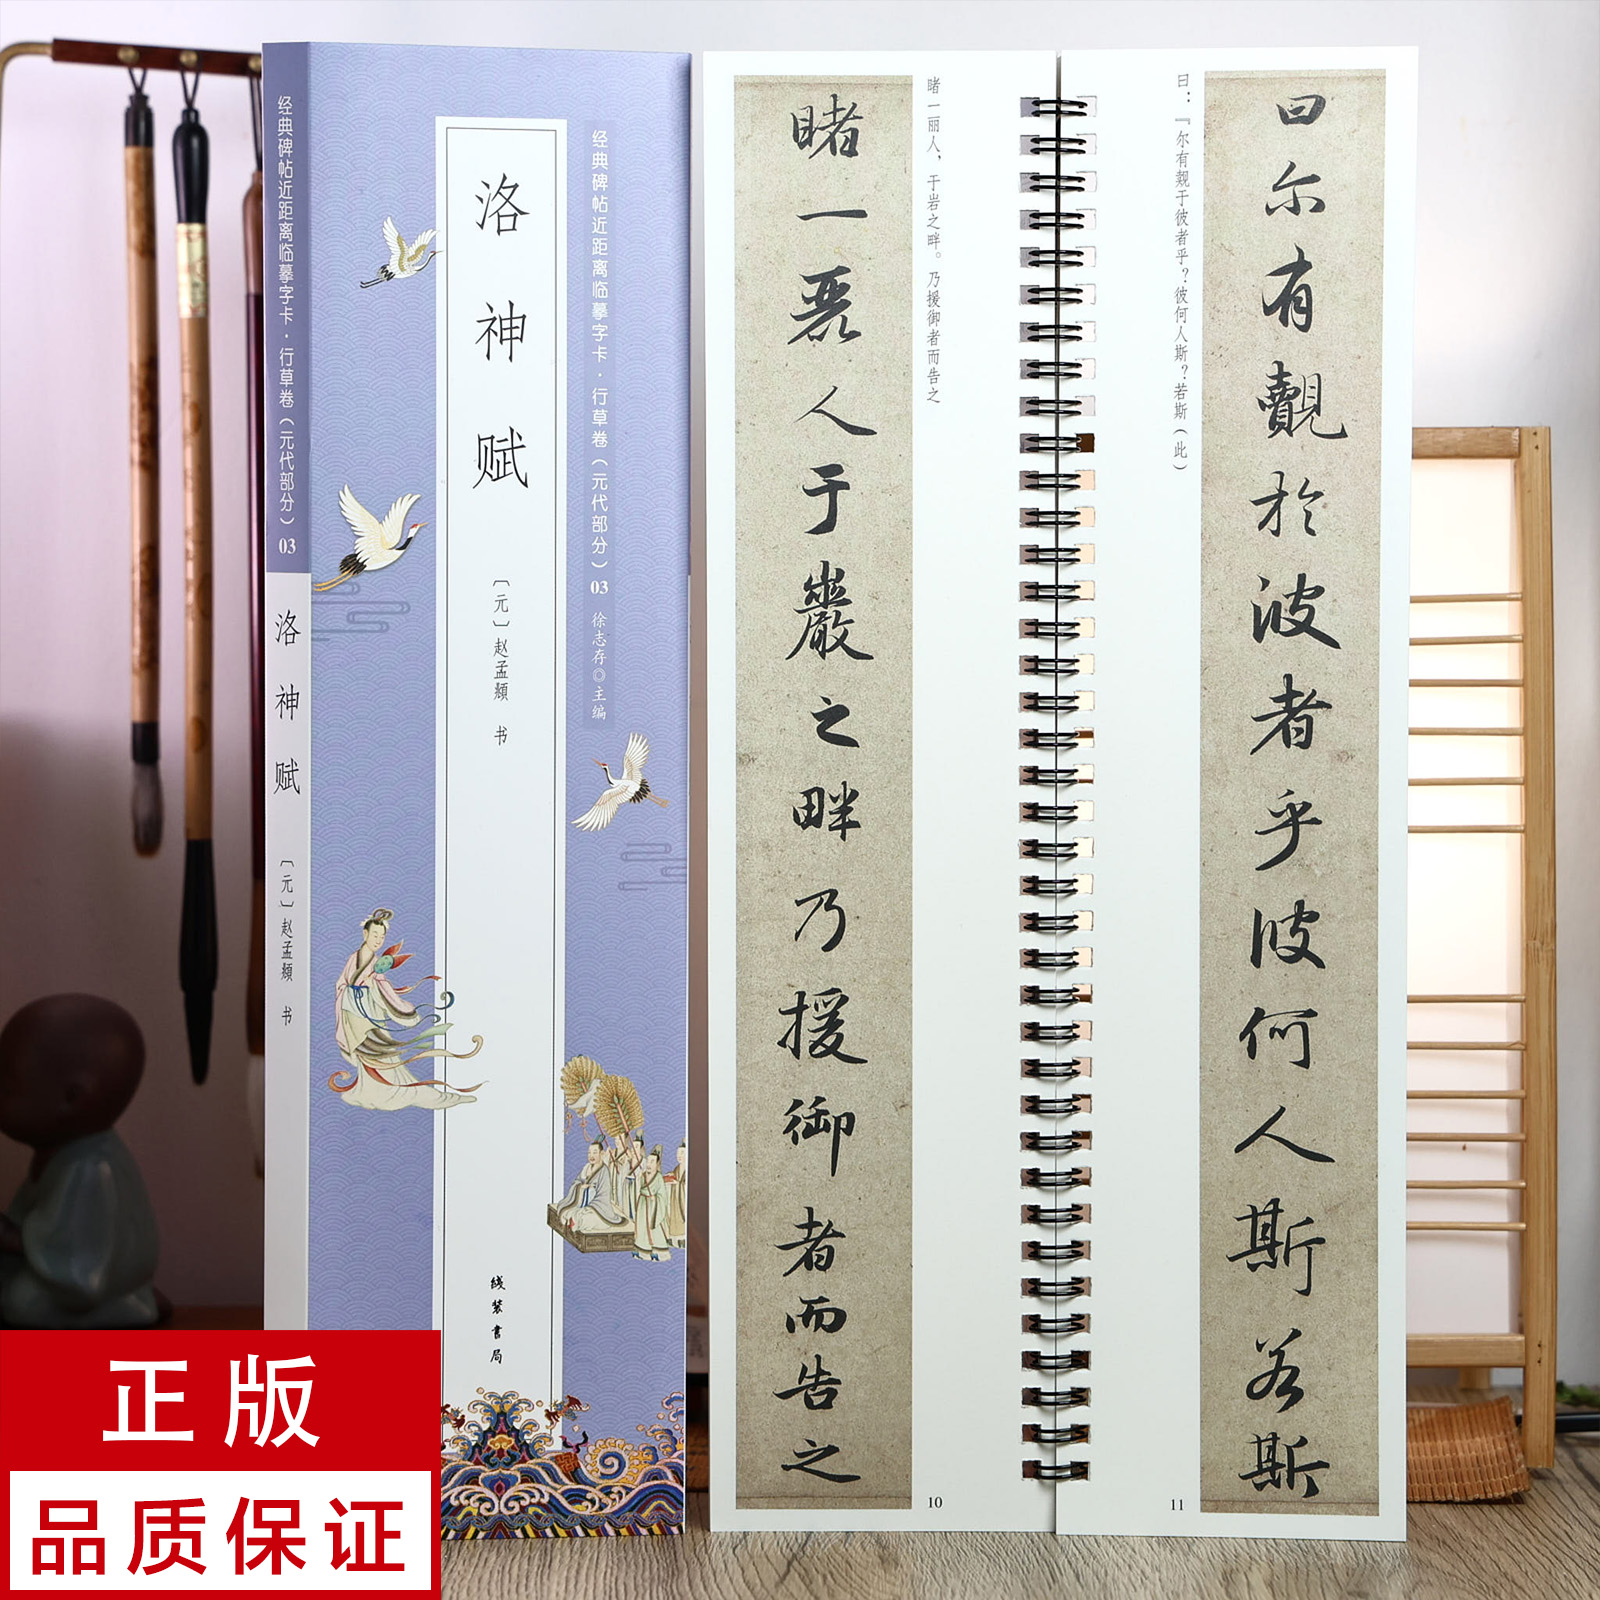 经典碑帖近距离临摹字卡·行草卷(元代部分) 03
洛神赋
〔元〕赵孟頫 书
经典碑帖近距离临摹字卡·行草卷(元代部分) 03 徐志存◎主编
洛神赋
〔元〕赵孟頫 书
线装書局
睹一丽人,于岩之畔。乃援御者而告之
睹一丽人于巖之畔乃援御者而告之
10
曰:『尔有觌于彼者乎?彼何人斯?若斯(此)
曰尔有觀於彼者乎彼何人斯若斯
11
正版
品质保证